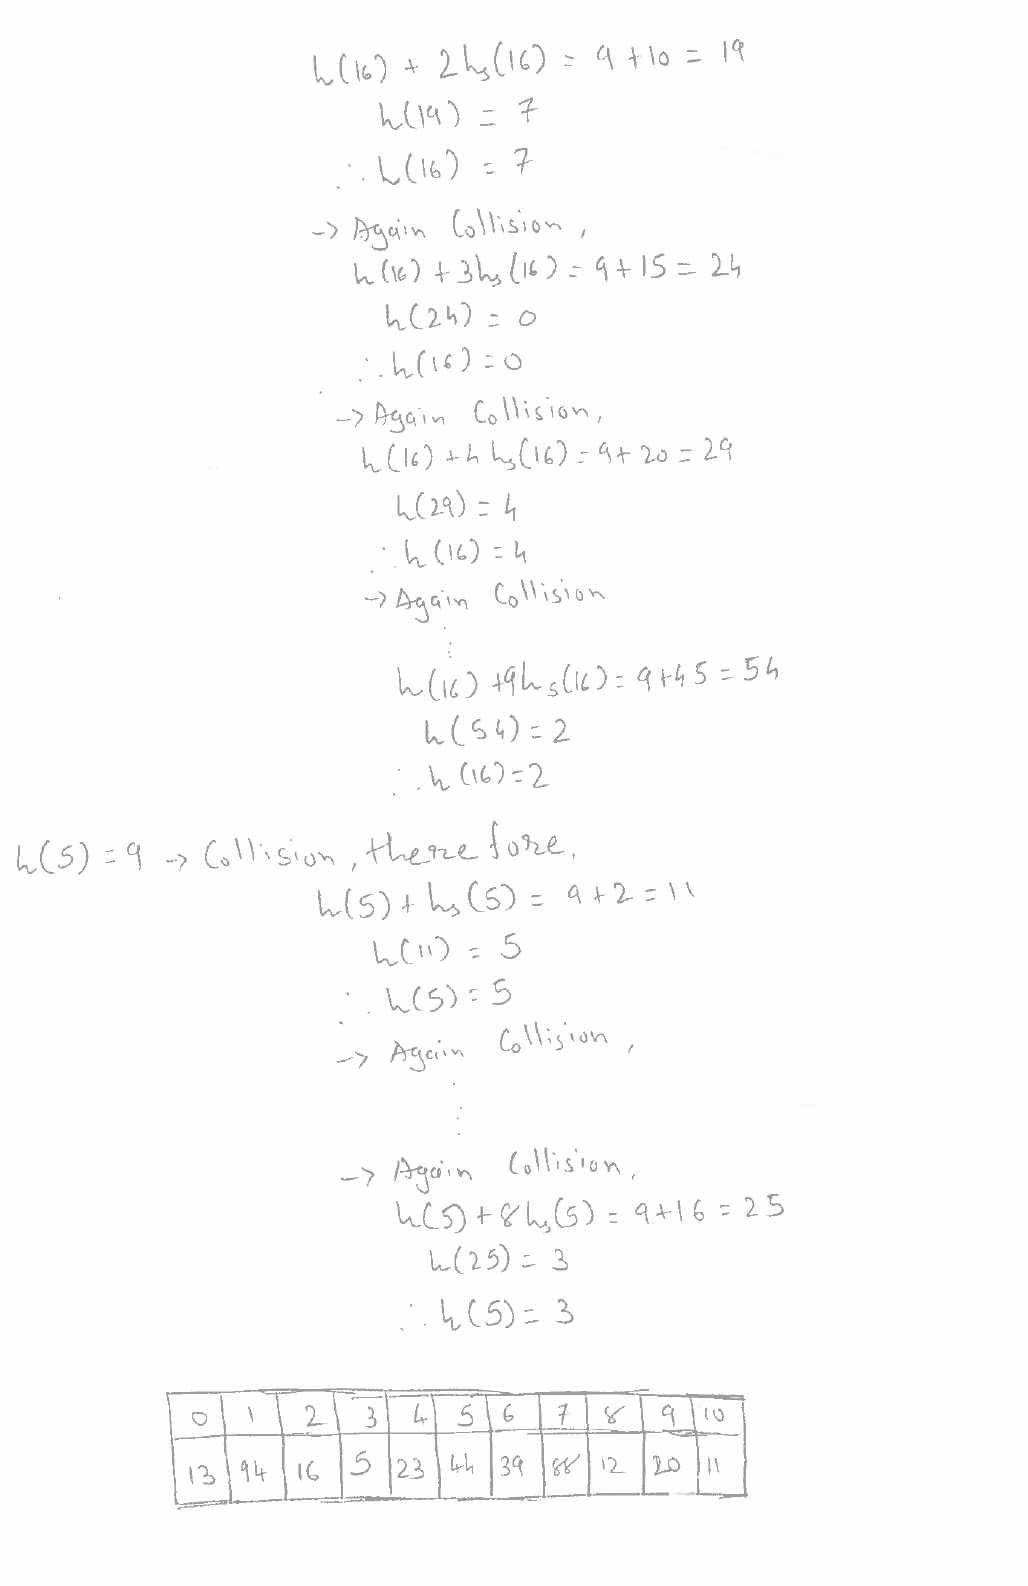 h(16) + 2hs(16) = 9 + 10 = 19
h(19) = 7
∴ h(16) = 7
-> Again Collision,
h(16) + 3hs(16) = 9 + 15 = 24
h(24) = 0
∴ h(16) = 0
-> Again Collision,
h(16) + 4 hs(16) = 9 + 20 = 29
h(29) = 4
∴ h(16) = 4
-> Again Collision
⋮
h(16) + 9hs(16) = 9 + 45 = 54
h(54) = 2
∴ h(16) = 2
h(5) = 9 -> Collision, therefore,
h(5) + hs(5) = 9 + 2 = 11
h(11) = 5
∴ h(5) = 5
-> Again Collision,
⋮
-> Again Collision,
h(5) + 8hs(5) = 9 + 16 = 25
h(25) = 3
∴ h(5) = 3
0 1 2 3 4 5 6 7 8 9 10
13 94 16 5 23 44 39 88 12 20 11